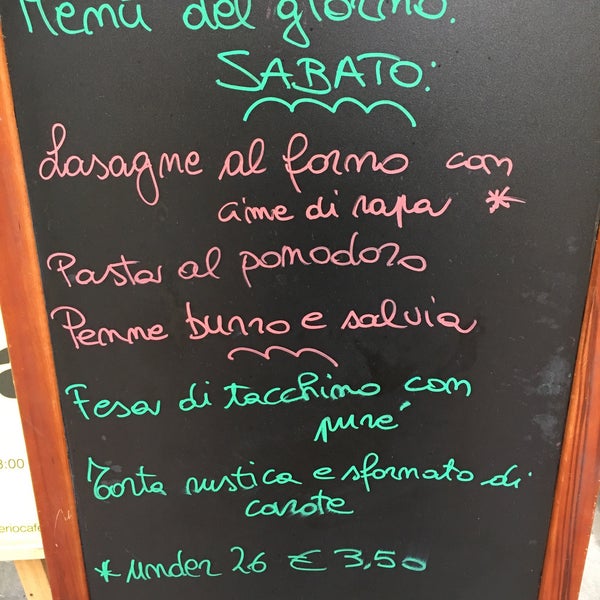 Menù del giorno:
SABATO:
Lasagne al forno con
cime di rapa *
Pasta al pomodoro
Penne burro e salvia
Fesa di tacchino con
purè
Torta rustica e sformato di
carote
* under 26 € 3,50
3:00